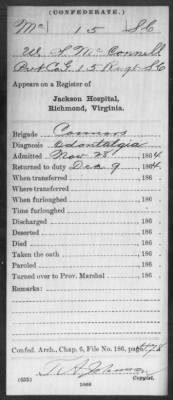 (CONFEDERATE.)
Mc 15 SC
W. S. McConnell
Pvt Co. G. 15 Regt SC
Appears on a Register of
Jackson Hospital,
Richmond, Virginia.
Brigade Connors
Diagnosis odontalgia
Admitted Nov 28, 1864
Returned to duty Dec 9, 1864.
When transferred , 186
Where transferred
When furloughed , 186
Time furloughed
Discharged , 186
Deserted , 186
Died , 186
Taken the oath , 186
Paroled , 186
Turned over to Prov. Marshal , 186
Remarks:
Confed. Arch., Chap. 6, File No. 186, page 478
T. A. Johnson
(635) Copyist.